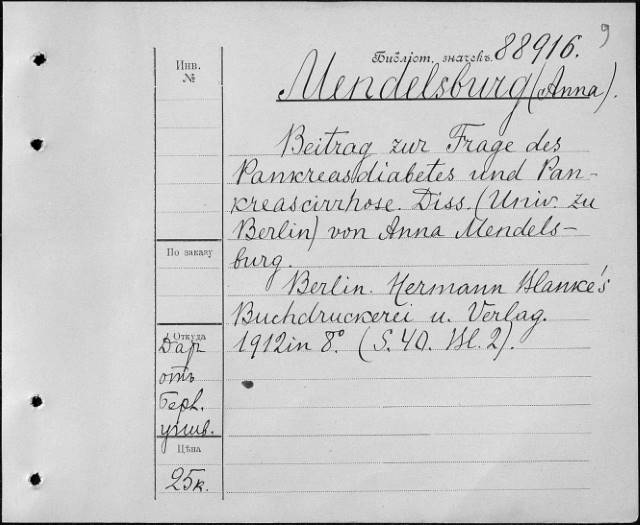 9
Библіот. значекъ. 88916.
Инв.
№
Mendelsburg (Anna).
Beitrag zur Frage des
Pankreasdiabetes und Pan-
kreascirrhose. Diss. (Univ. zu
Berlin) von Anna Mendels-
burg.
По заказу
Berlin. Hermann Blanke's
Buchdruckerei u. Verlag.
1912 in 8°. (S. 40. Bl. 2).
Откуда
Даръ
отъ
Берл.
унив.
Цѣна
25к.